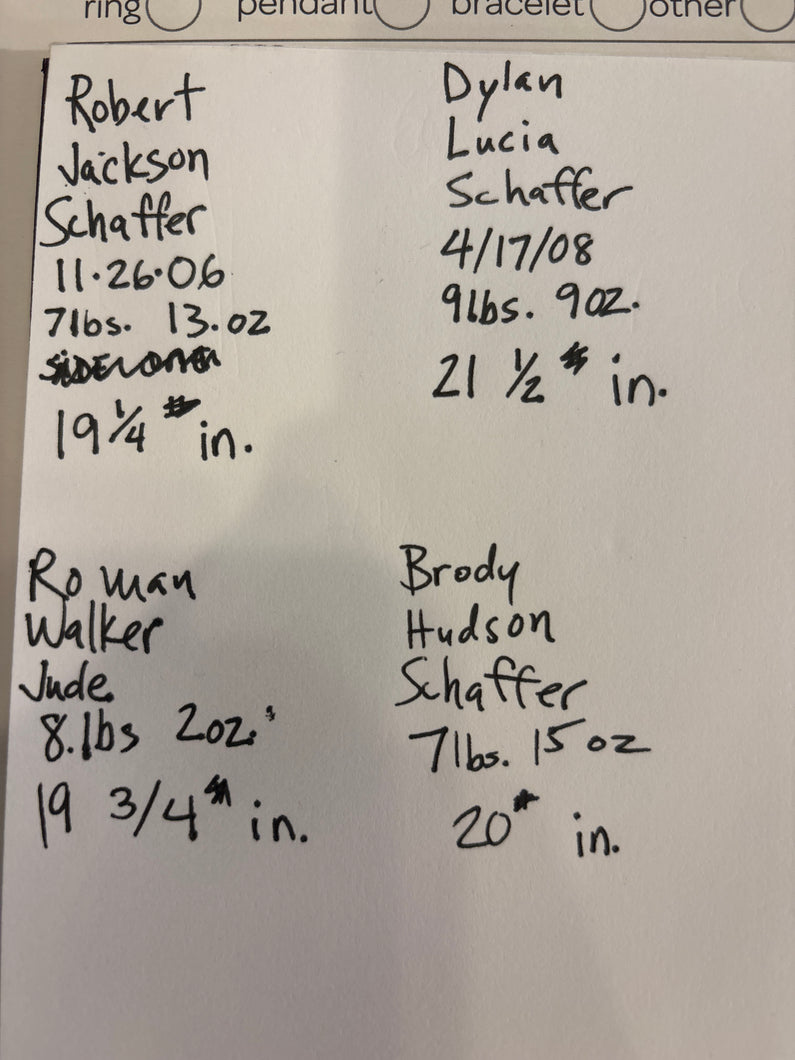 ring pendant bracelet other
Robert
Jackson
Schaffer
11·26·06
7lbs. 13.oz
19 1/4 in.
Dylan
Lucia
Schaffer
4/17/08
9lbs. 9oz.
21 1/2 in.
Roman
Walker
Jude
8.lbs 2oz.
19 3/4 in.
Brody
Hudson
Schaffer
7lbs. 15 oz
20 in.